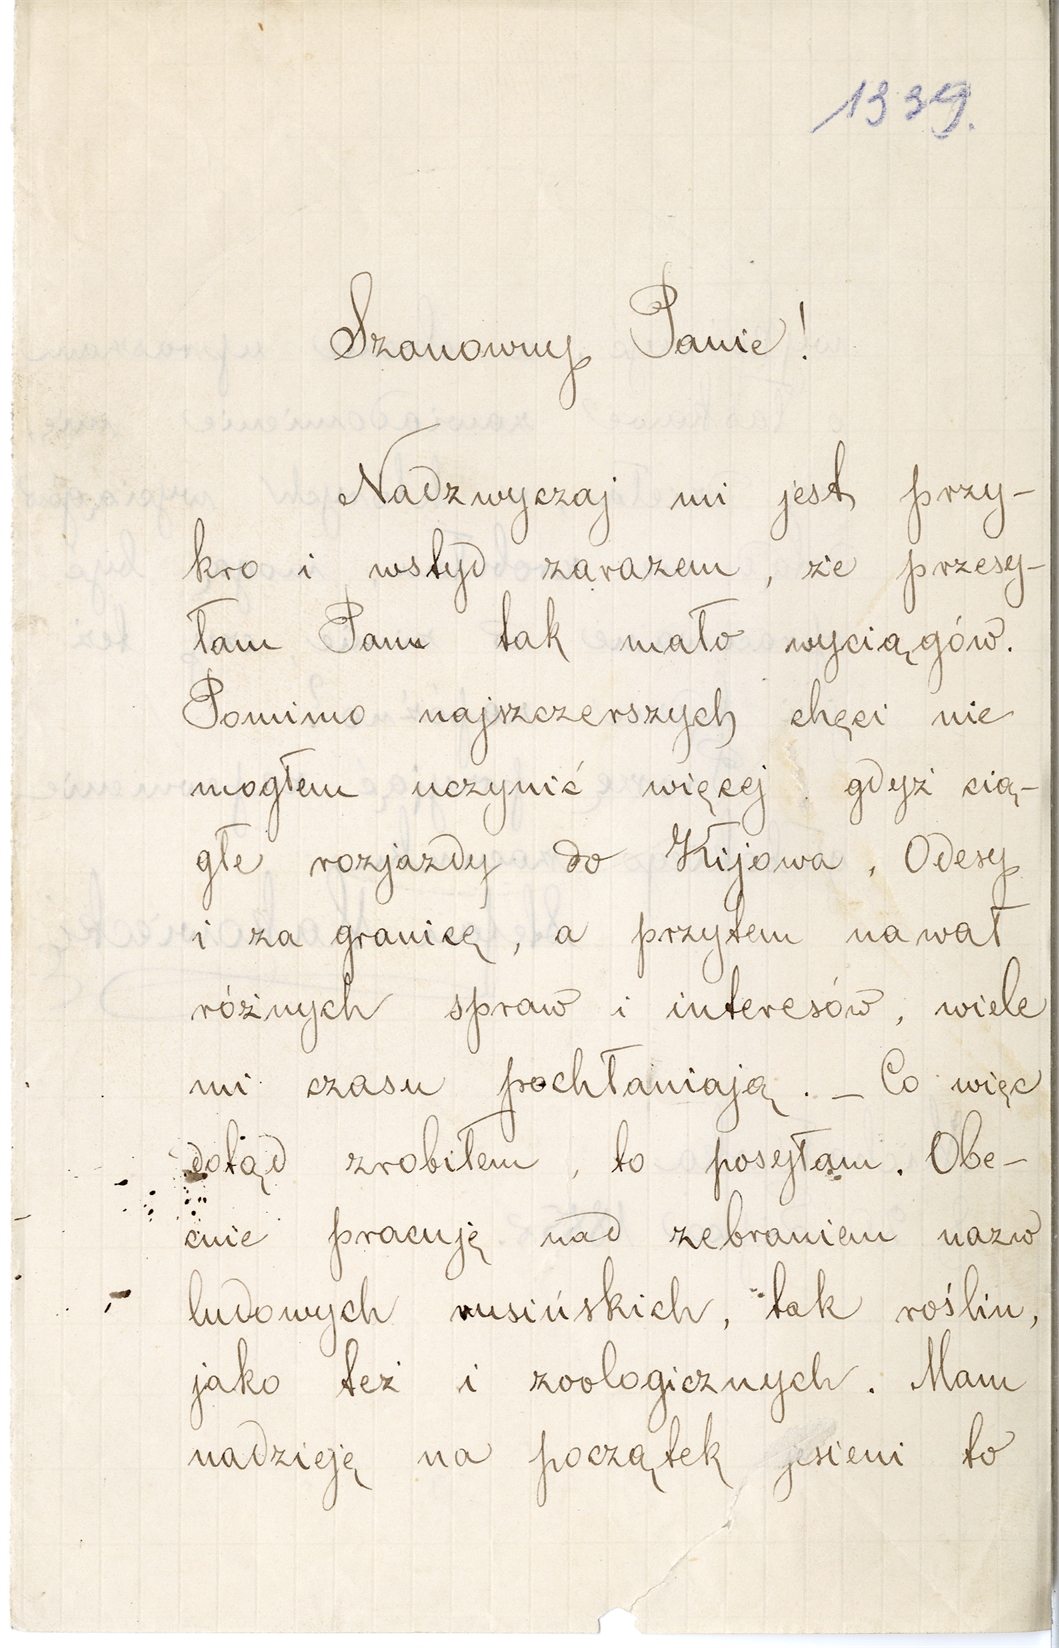 1339.
Szanowny Panie!
Nadzwyczaj mi jest przy-
kro i wstyd zarazem, że przesy-
łam Panu tak mało wyciągów.
Pomimo najszczerszych chęci nie
mogłem uczynić więcej, gdyż cią-
głe rozjazdy do Kijowa, Odesy
i za granicę, a przytem nawał
różnych spraw i interesów, wiele
mi czasu pochłaniają. – Co więc
dotąd zrobiłem, to posyłam. Obe-
cnie pracuję nad zebraniem nazw
ludowych rusińskich, tak roślin,
jako też i zoologicznych. Mam
nadzieję na początek jesieni to